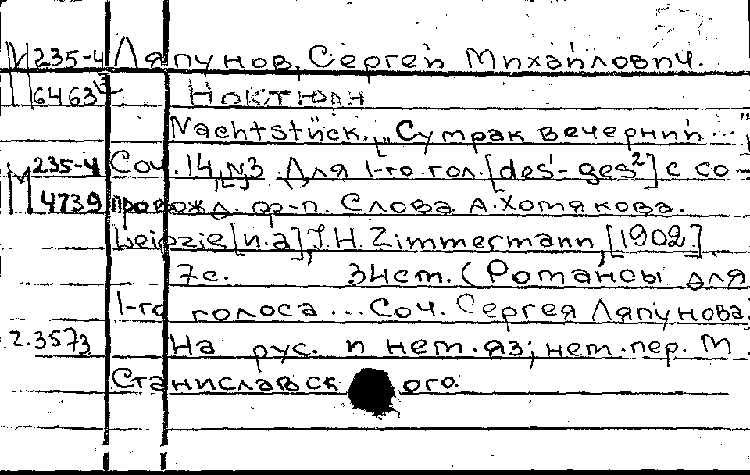 М 235-4 Ляпунов, Сергей Михайлович.
6463 Ноктюрн
Nachtstück. „Сумрак вечерний ..."
М 235-4 Соч. 14, №3. Для 1-го гол. [des'-ges²] с со-
4739 провожд. ф-п. Слова А. Хомякова.
Leipzig [u.a], J. H. Zimmermann, [1902]
7с. 3нст. (Романсы для
1-го голоса ... Соч. Сергея Ляпунова.
2.3573 На рус. и нем. яз; нем. пер. М.
Станиславского.